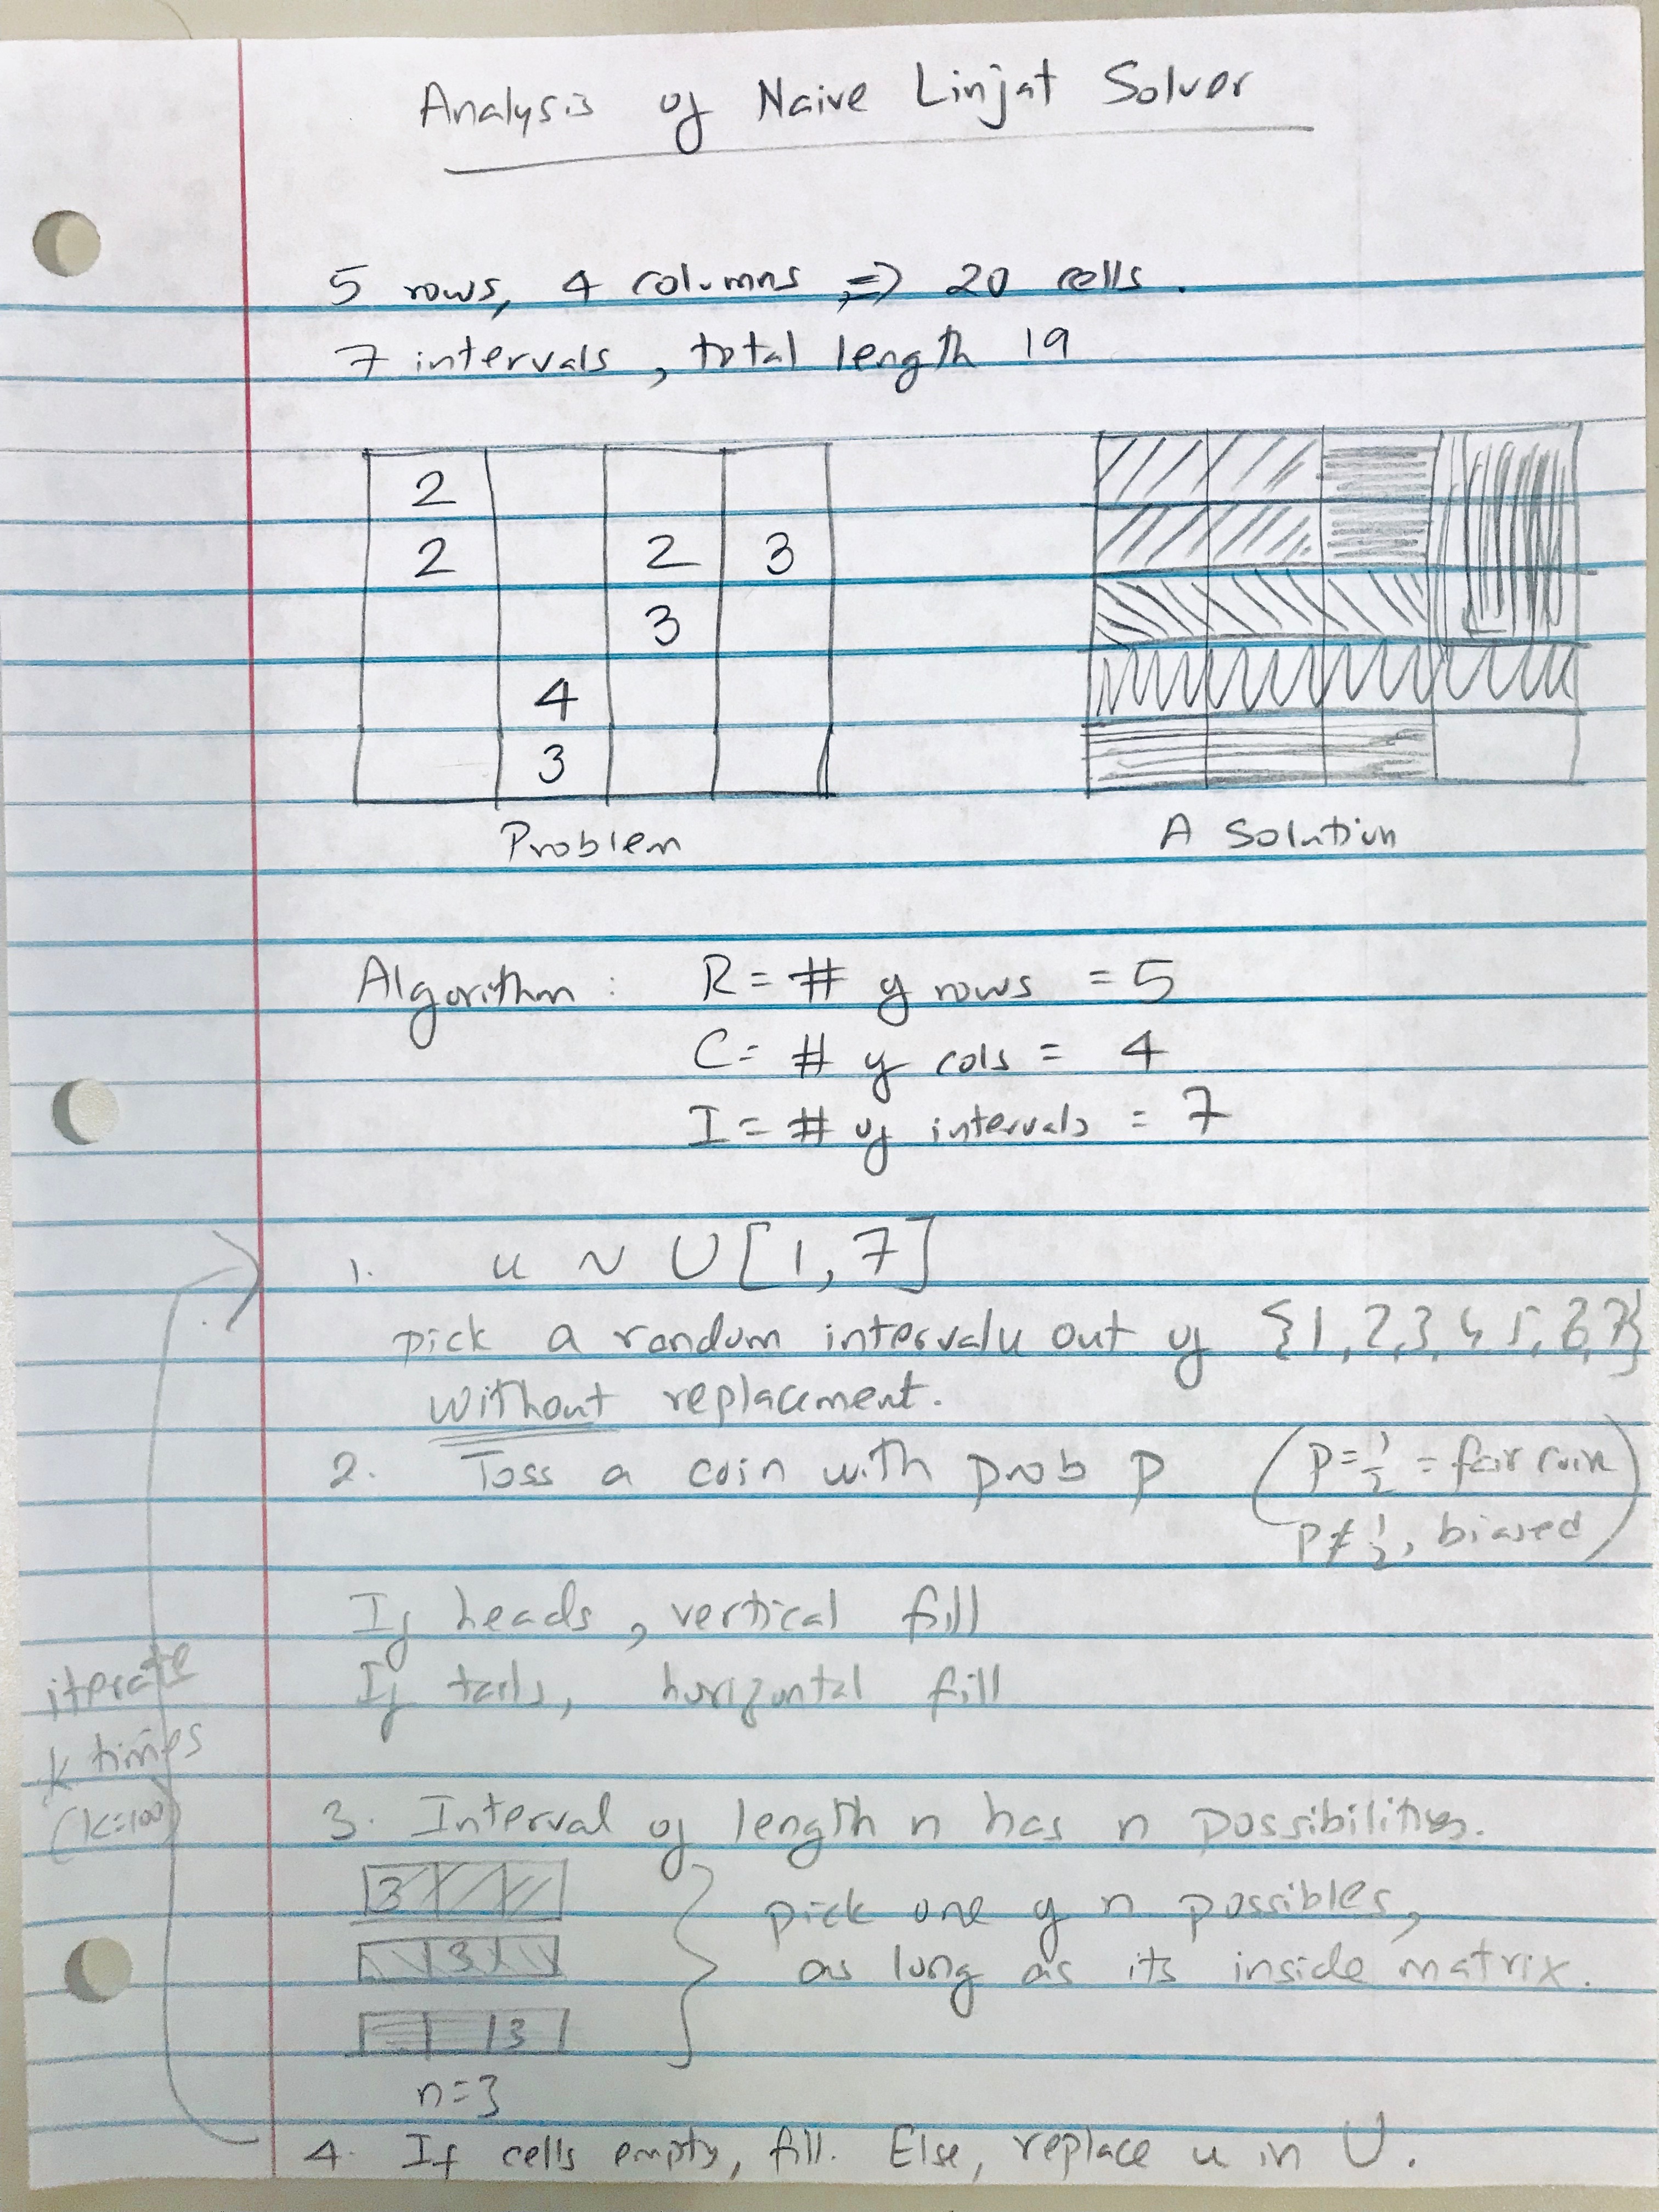 Analysis of Naive Linjat Solver
5 rows, 4 columns => 20 cells.
7 intervals, total length 19
2
2 2 3
3
4
3
Problem
A Solution
Algorithm: R = # of rows = 5
C = # of cols = 4
I = # of intervals = 7
1. u ~ U[1,7]
pick a random interval u out of {1,2,3,4,5,6,7}
without replacement.
2. Toss a coin with prob p (p=1/2 = fair coin
p≠1/2, biased)
If heads, vertical fill
If tails, horizontal fill
iterate
k times
(k=100)
3. Interval of length n has n possibilities.
3
3
3
pick one of n possibles,
as long as its inside matrix.
n=3
4. If cells empty, fill. Else, replace u in U.